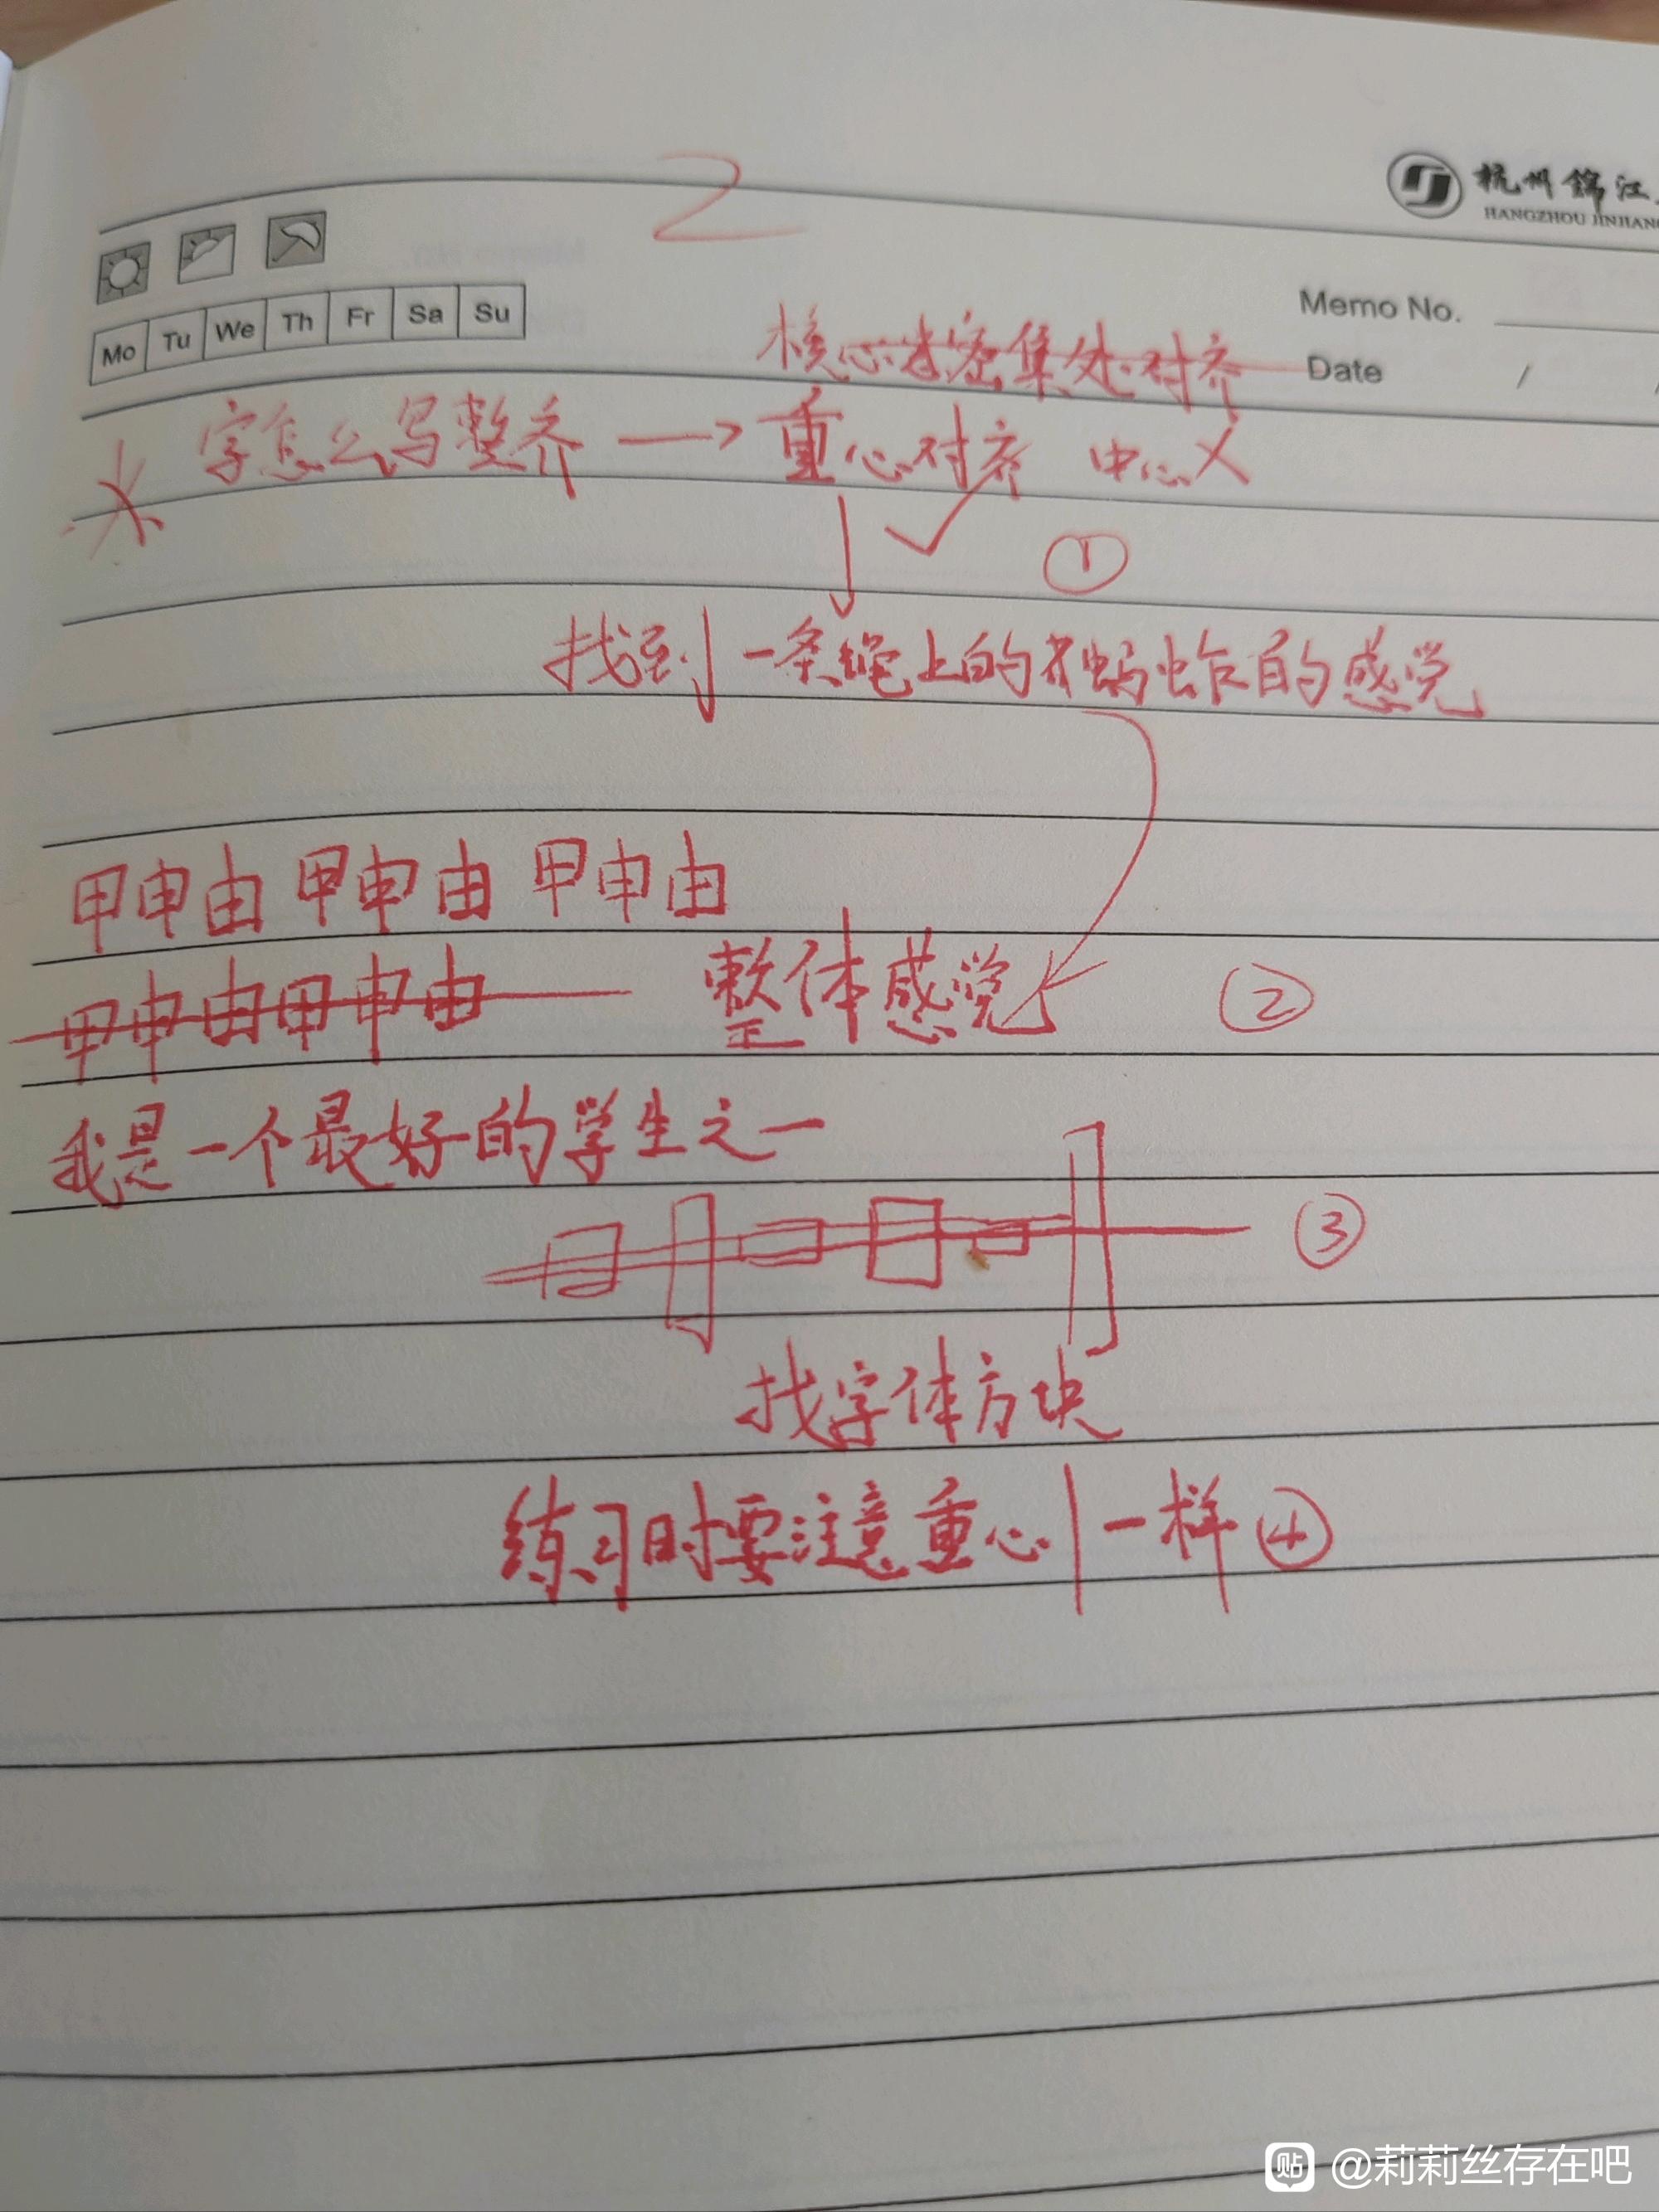 2
杭州锦江
HANGZHOU JINJIANG
Mo Tu We Th Fr Sa Su
Memo No.
Date / /
核心密集处对齐
字怎么写整齐 → 重心对齐 中心X
✓ ①
找到一条绳上的蚂蚱的感觉
甲申由甲申由甲申由
甲申由甲申由 整体感觉 ②
我是一个最好的学生之一
③
找字体方块
练习时要注意重心一样④
贴 @莉莉丝存在吧